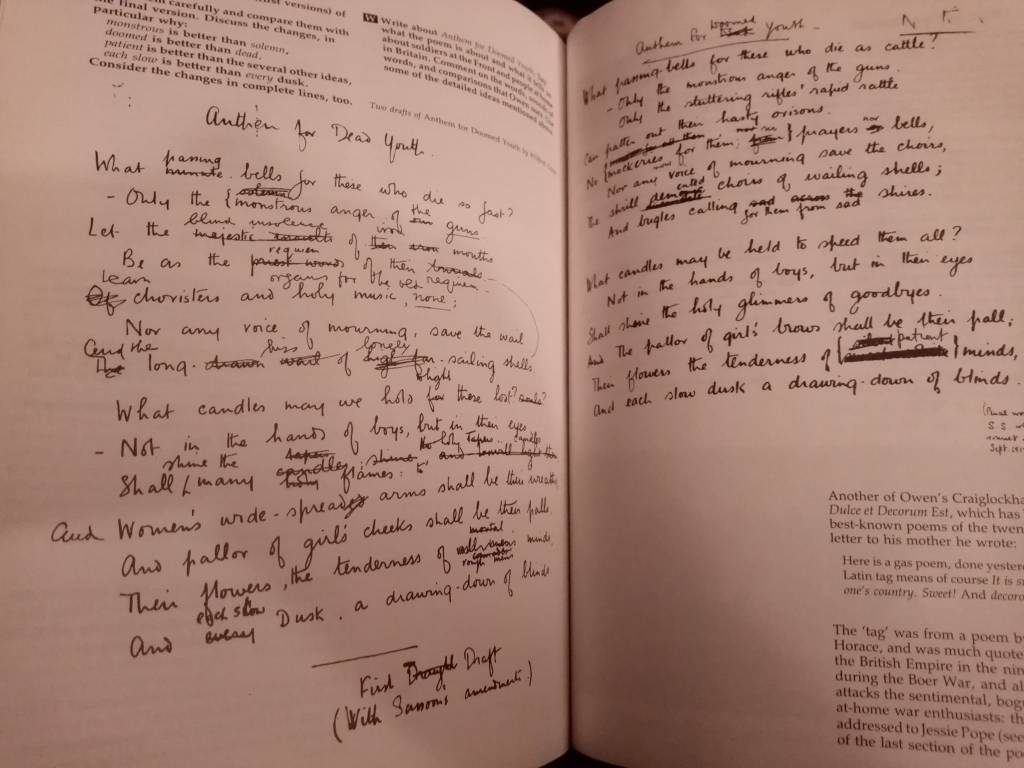 versions) of
carefully and compare them with
the final version. Discuss the changes, in
particular why:
monstrous is better than solemn,
doomed is better than dead,
patient is better than the several other ideas,
each slow is better than every dusk.
Consider the changes in complete lines, too.
W Write about Anthem for Doomed Youth,
what the poem is about and what it
about soldiers at the Front and people
in Britain. Comment on the words,
words, and comparisons that Owen
some of the detailed ideas mentioned above
Two drafts of Anthem for Doomed Youth by Wilfred
Anthem for Dead Youth.
passing
What minute bells for these who die so fast?
solemn
- Only the monstrous anger of the our guns
blind insolence iron
Let the majestic insults of their iron mouths
requiem
Be as the priest-words of their burials
Learn organs for the old requiem.
Of choristers and holy music, none;
Nor any voice of mourning, save the wail
And the hiss lonely
The long-drawn wail of high far-sailing shells.
light
What candles may we hold for these lost? souls?
- Not in the hands of boys, but in their eyes
shine the tapers the holy tapers candles
Shall many candles shine and small light them
holy flames: to
And Women's wide-spread arms shall be their wreaths
And pallor of girl's cheeks shall be their palls.
mortal
Their flowers, the tenderness of minds
comrades
rough men's
each slow
And every Dusk. a drawing-down of blinds
First Draft
(With Sassoon's amendments.)
Doomed
Anthem for Dead Youth.
What passing bells for these who die as cattle?
- Only the monstrous anger of the guns.
Only the stuttering rifles' rapid rattle
Can patter out their hasty orisons.
No mockeries now for them; no prayers nor bells,
Nor any voice of mourning save the choirs,
The shrill demented choirs of wailing shells;
And bugles calling sad across the shires.
for them from sad
What candles may be held to speed them all?
Not in the hands of boys, but in their eyes
Shall shine the holy glimmers of goodbyes.
And The pallor of girl's brows shall be their pall;
silent patient
Their flowers the tenderness of minds,
And each slow dusk a drawing-down of blinds.
S.S.
Sept. 191
Another of Owen's Craiglockha
Dulce et Decorum Est, which has
best-known poems of the twen
letter to his mother he wrote:
Here is a gas poem, done yester
Latin tag means of course It is s
one's country. Sweet! And decoro
The 'tag' was from a poem by
Horace, and was much quote
the British Empire in the nin
during the Boer War, and al
attacks the sentimental, bog
at-home war enthusiasts: th
addressed to Jessie Pope (see
of the last section of the po